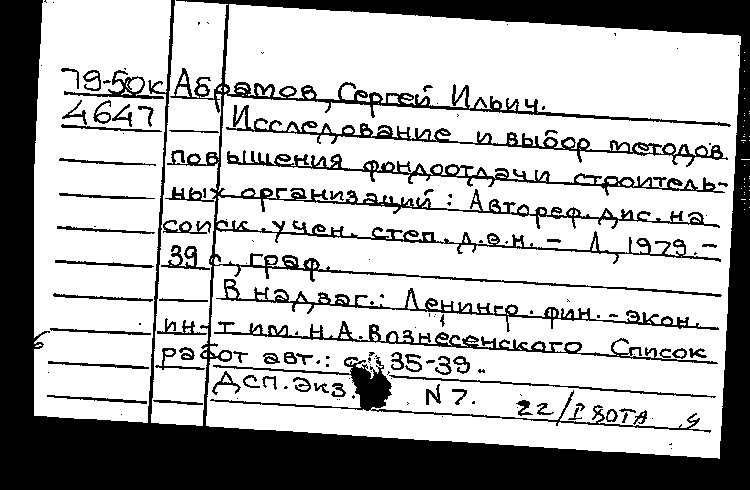 79-50к Абрамов, Сергей Ильич.
4647 Исследование и выбор методов
повышения фондоотдачи строитель-
ных организаций: Автореф. дис. на
соиск. учен. степ. д.э.н. - Л., 1979. -
39 с., граф.
В надзаг.: Ленингр. фин.-экон.
ин-т им. Н.А. Вознесенского. Список
работ авт.: с. 35-39.
ДСП. Экз. N 7.